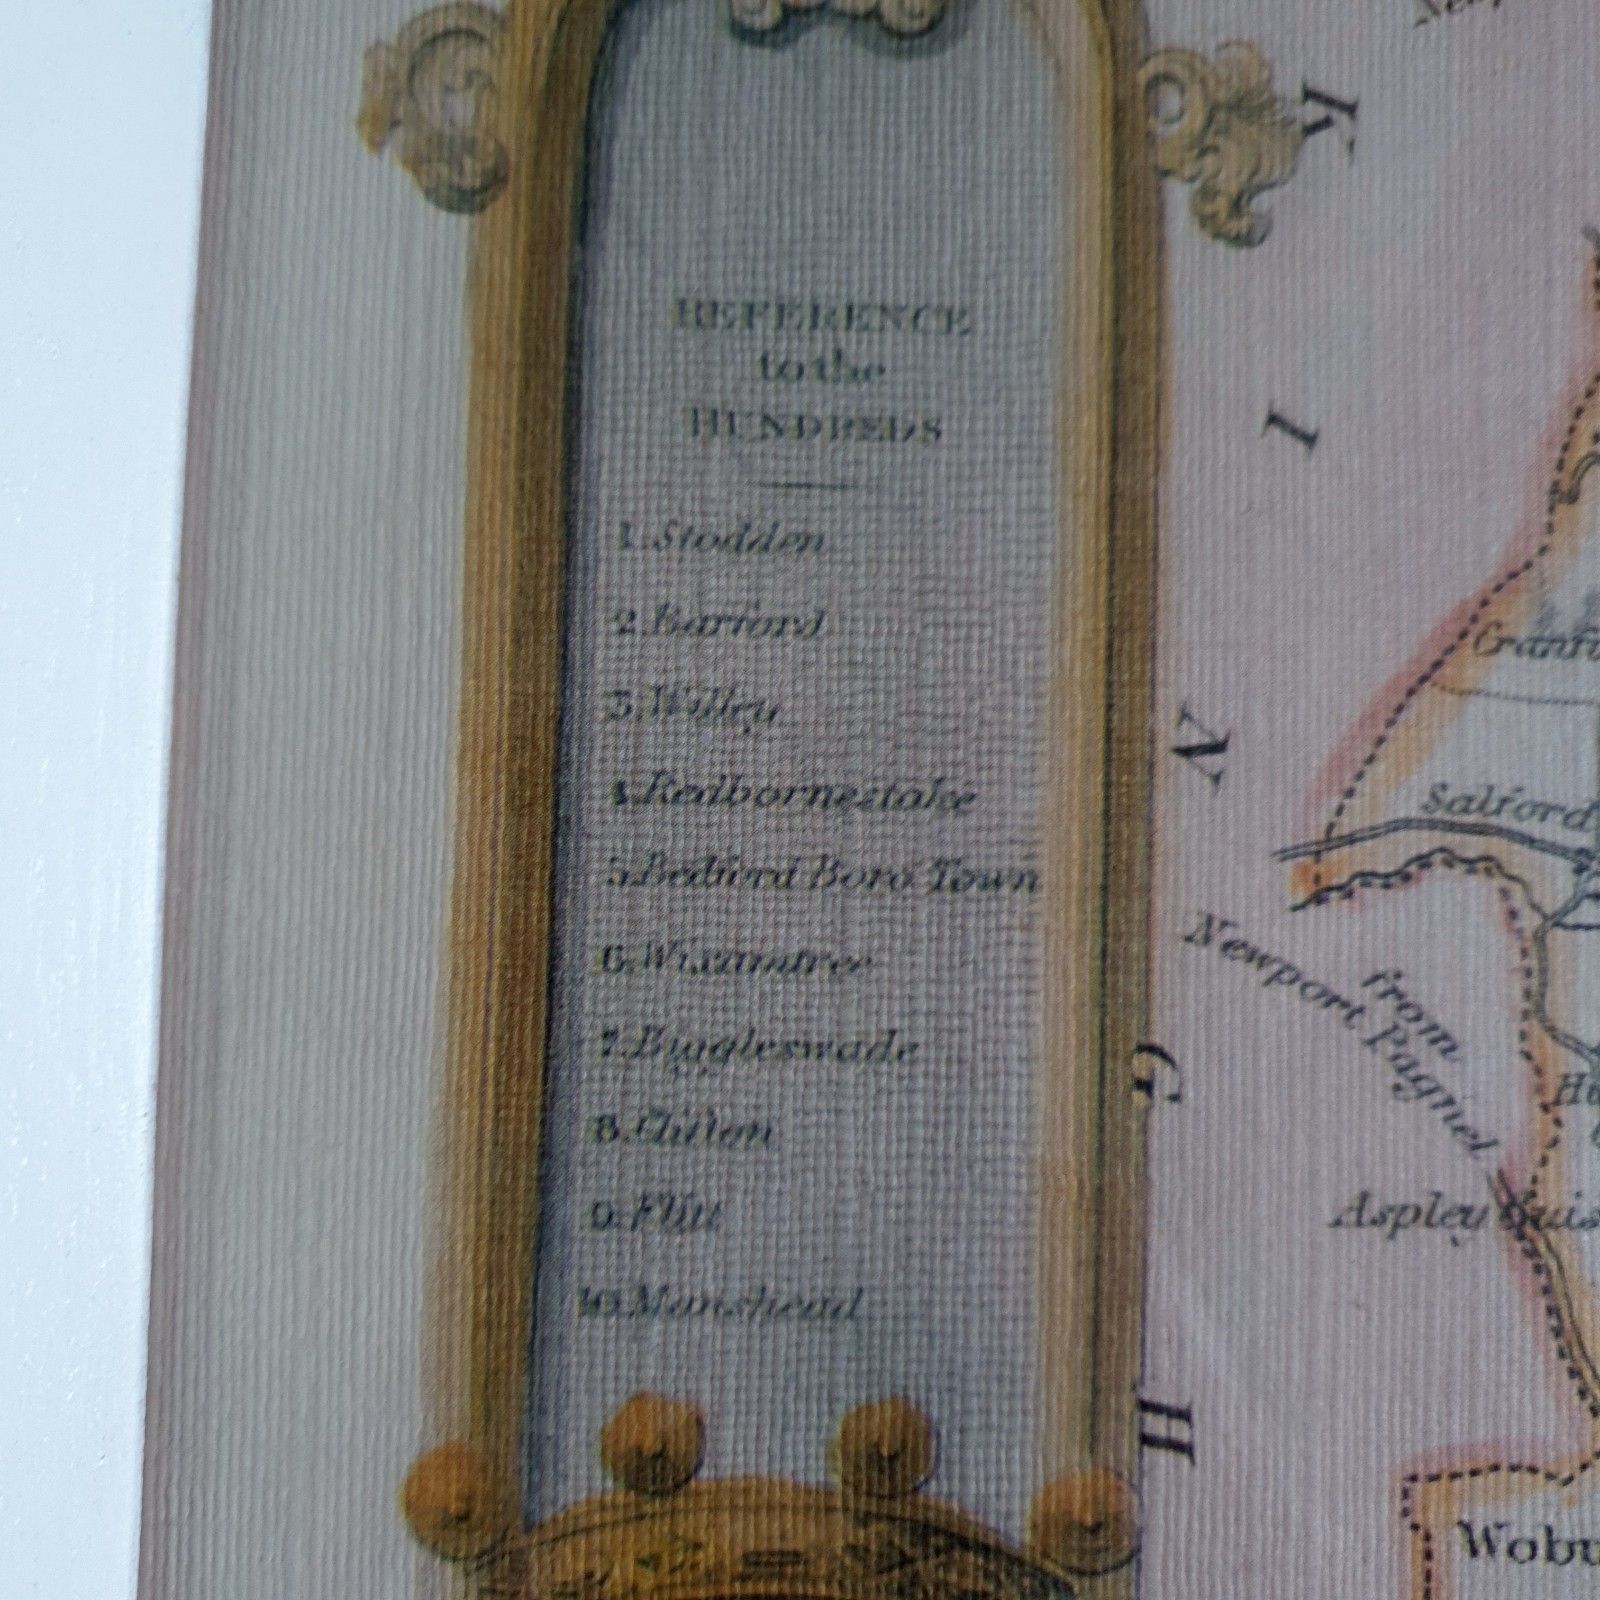 REFERENCE
to the
HUNDREDS
1. Stodden
2. Barford
3. Willey
4. Redbornestoke
5. Bedford Boro Town
6. Wixamtree
7. Biggleswade
8. Clifton
9. Flitt
10. Manshead
K
I
N
G
H
Salford
from
Newport Pagnel
Aspley Guis
Wobu